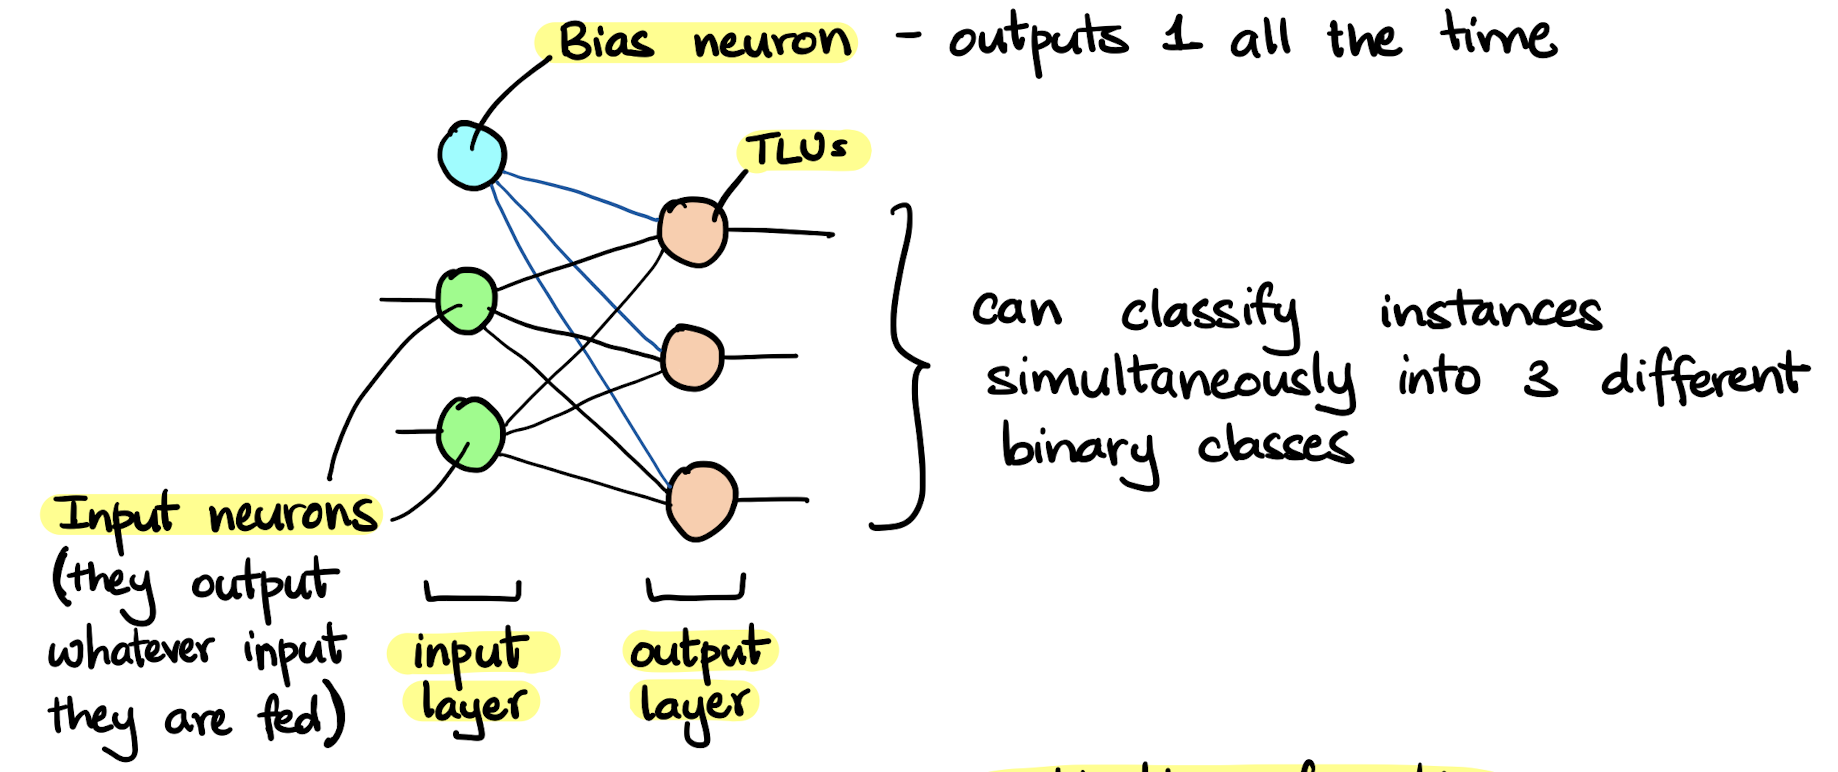 Bias neuron - outputs 1 all the time
TLUs
can classify instances
simultaneously into 3 different
binary classes
Input neurons
(they output
whatever input
they are fed)
input
layer
output
layer